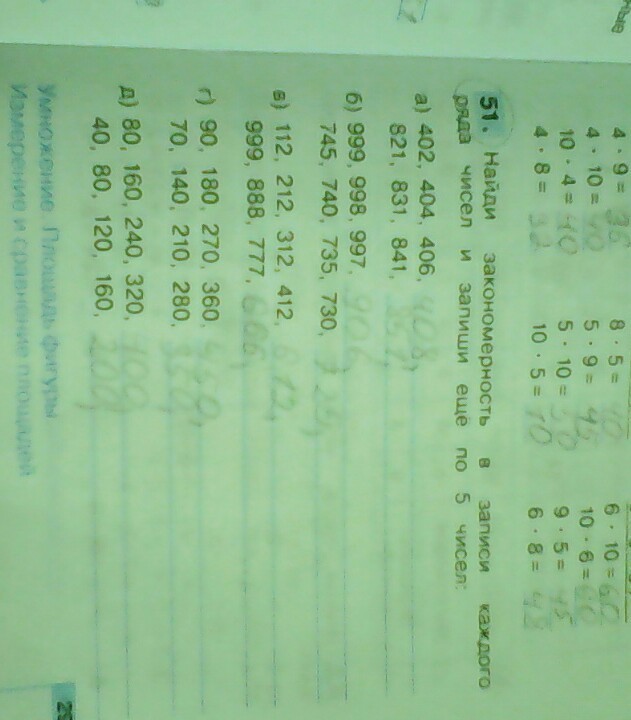 4 · 9 = 36 8 · 5 = 40 6 · 10 = 60
4 · 10 = 40 5 · 9 = 45 10 · 6 = 60
10 · 4 = 40 5 · 10 = 50 9 · 5 = 45
4 · 8 = 32 10 · 5 = 50 6 · 8 = 48
51. Найди закономерность в записи каждого
ряда чисел и запиши ещё по 5 чисел:
а) 402, 404, 406, 408,
821, 831, 841,
б) 999, 998, 997,
745, 740, 735, 730,
в) 112, 212, 312, 412,
999, 888, 777, 666,
г) 90, 180, 270, 360,
70, 140, 210, 280,
д) 80, 160, 240, 320, 400
40, 80, 120, 160, 200,
Умножение. Площадь фигуры
Измерение и сравнение площадей